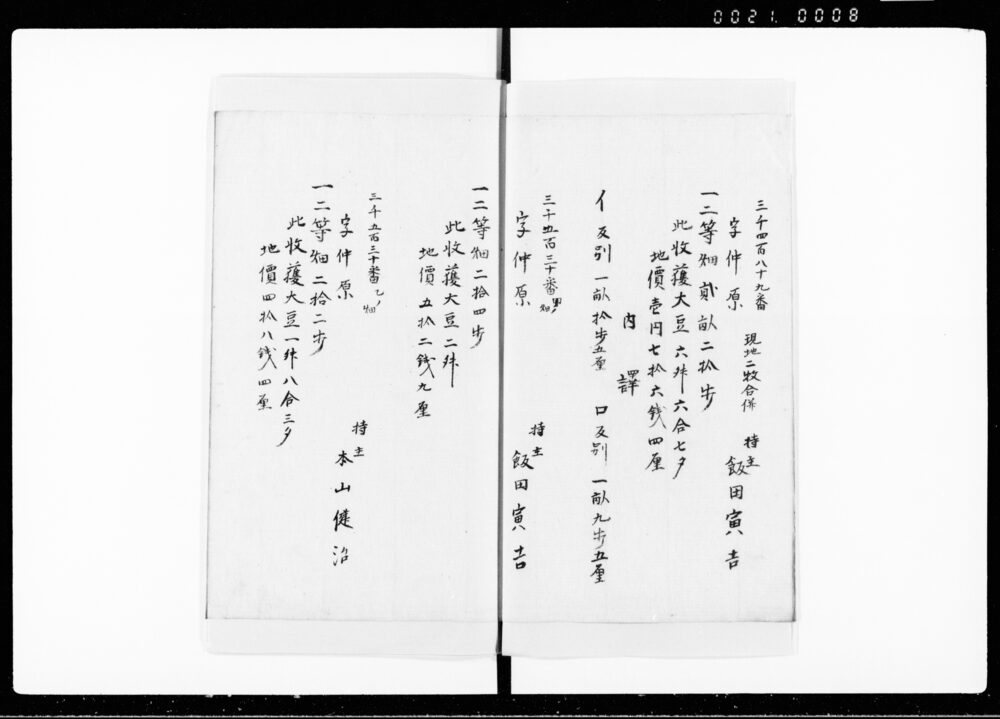 0021.0008
三千四百八十九番 現地二牧合併
字仲原 持主 飯田寅吉
一二等畑貮畝二拾歩
此收獲大豆六舛六合七夕
地價壱円七拾六錢四厘
内譯
イ反別一畝拾歩五厘 ロ反別一畝九歩五厘
三千五百三十番甲ノ畑
字仲原 持主 飯田寅吉
一二等畑二拾四歩
此收獲大豆二舛
地價五拾二錢九厘
三千五百三十番乙ノ畑
字仲原 持主 本山健治
一二等畑二拾二歩
此收獲大豆一舛八合三夕
地價四拾八錢四厘